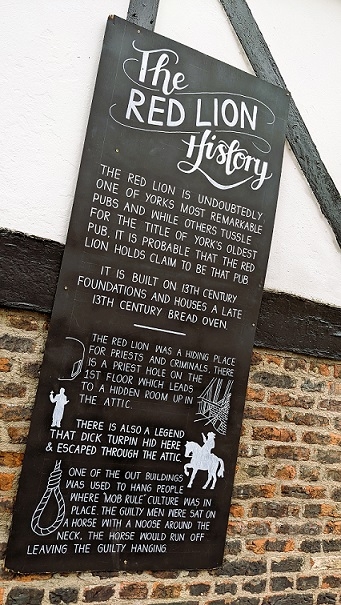 The
RED LION
History
THE RED LION IS UNDOUBTEDLY
ONE OF YORKS MOST REMARKABLE
PUBS AND WHILE OTHERS TUSSLE
FOR THE TITLE OF YORK'S OLDEST
PUB, IT IS PROBABLE THAT THE RED
LION HOLDS CLAIM TO BE THAT PUB
IT IS BUILT ON 13TH CENTURY
FOUNDATIONS AND HOUSES A LATE
13TH CENTURY BREAD OVEN
THE RED LION WAS A HIDING PLACE
FOR PRIESTS AND CRIMINALS, THERE
IS A PRIEST HOLE ON THE
1ST FLOOR WHICH LEADS
TO A HIDDEN ROOM UP IN
THE ATTIC.
THERE IS ALSO A LEGEND
THAT DICK TURPIN HID HERE
& ESCAPED THROUGH THE ATTIC
ONE OF THE OUT BUILDINGS
WAS USED TO HANG PEOPLE
WHERE 'MOB RULE' CULTURE WAS IN
PLACE. THE GUILTY MEN WERE SAT ON
A HORSE WITH A NOOSE AROUND THE
NECK, THE HORSE WOULD RUN OFF
LEAVING THE GUILTY HANGING